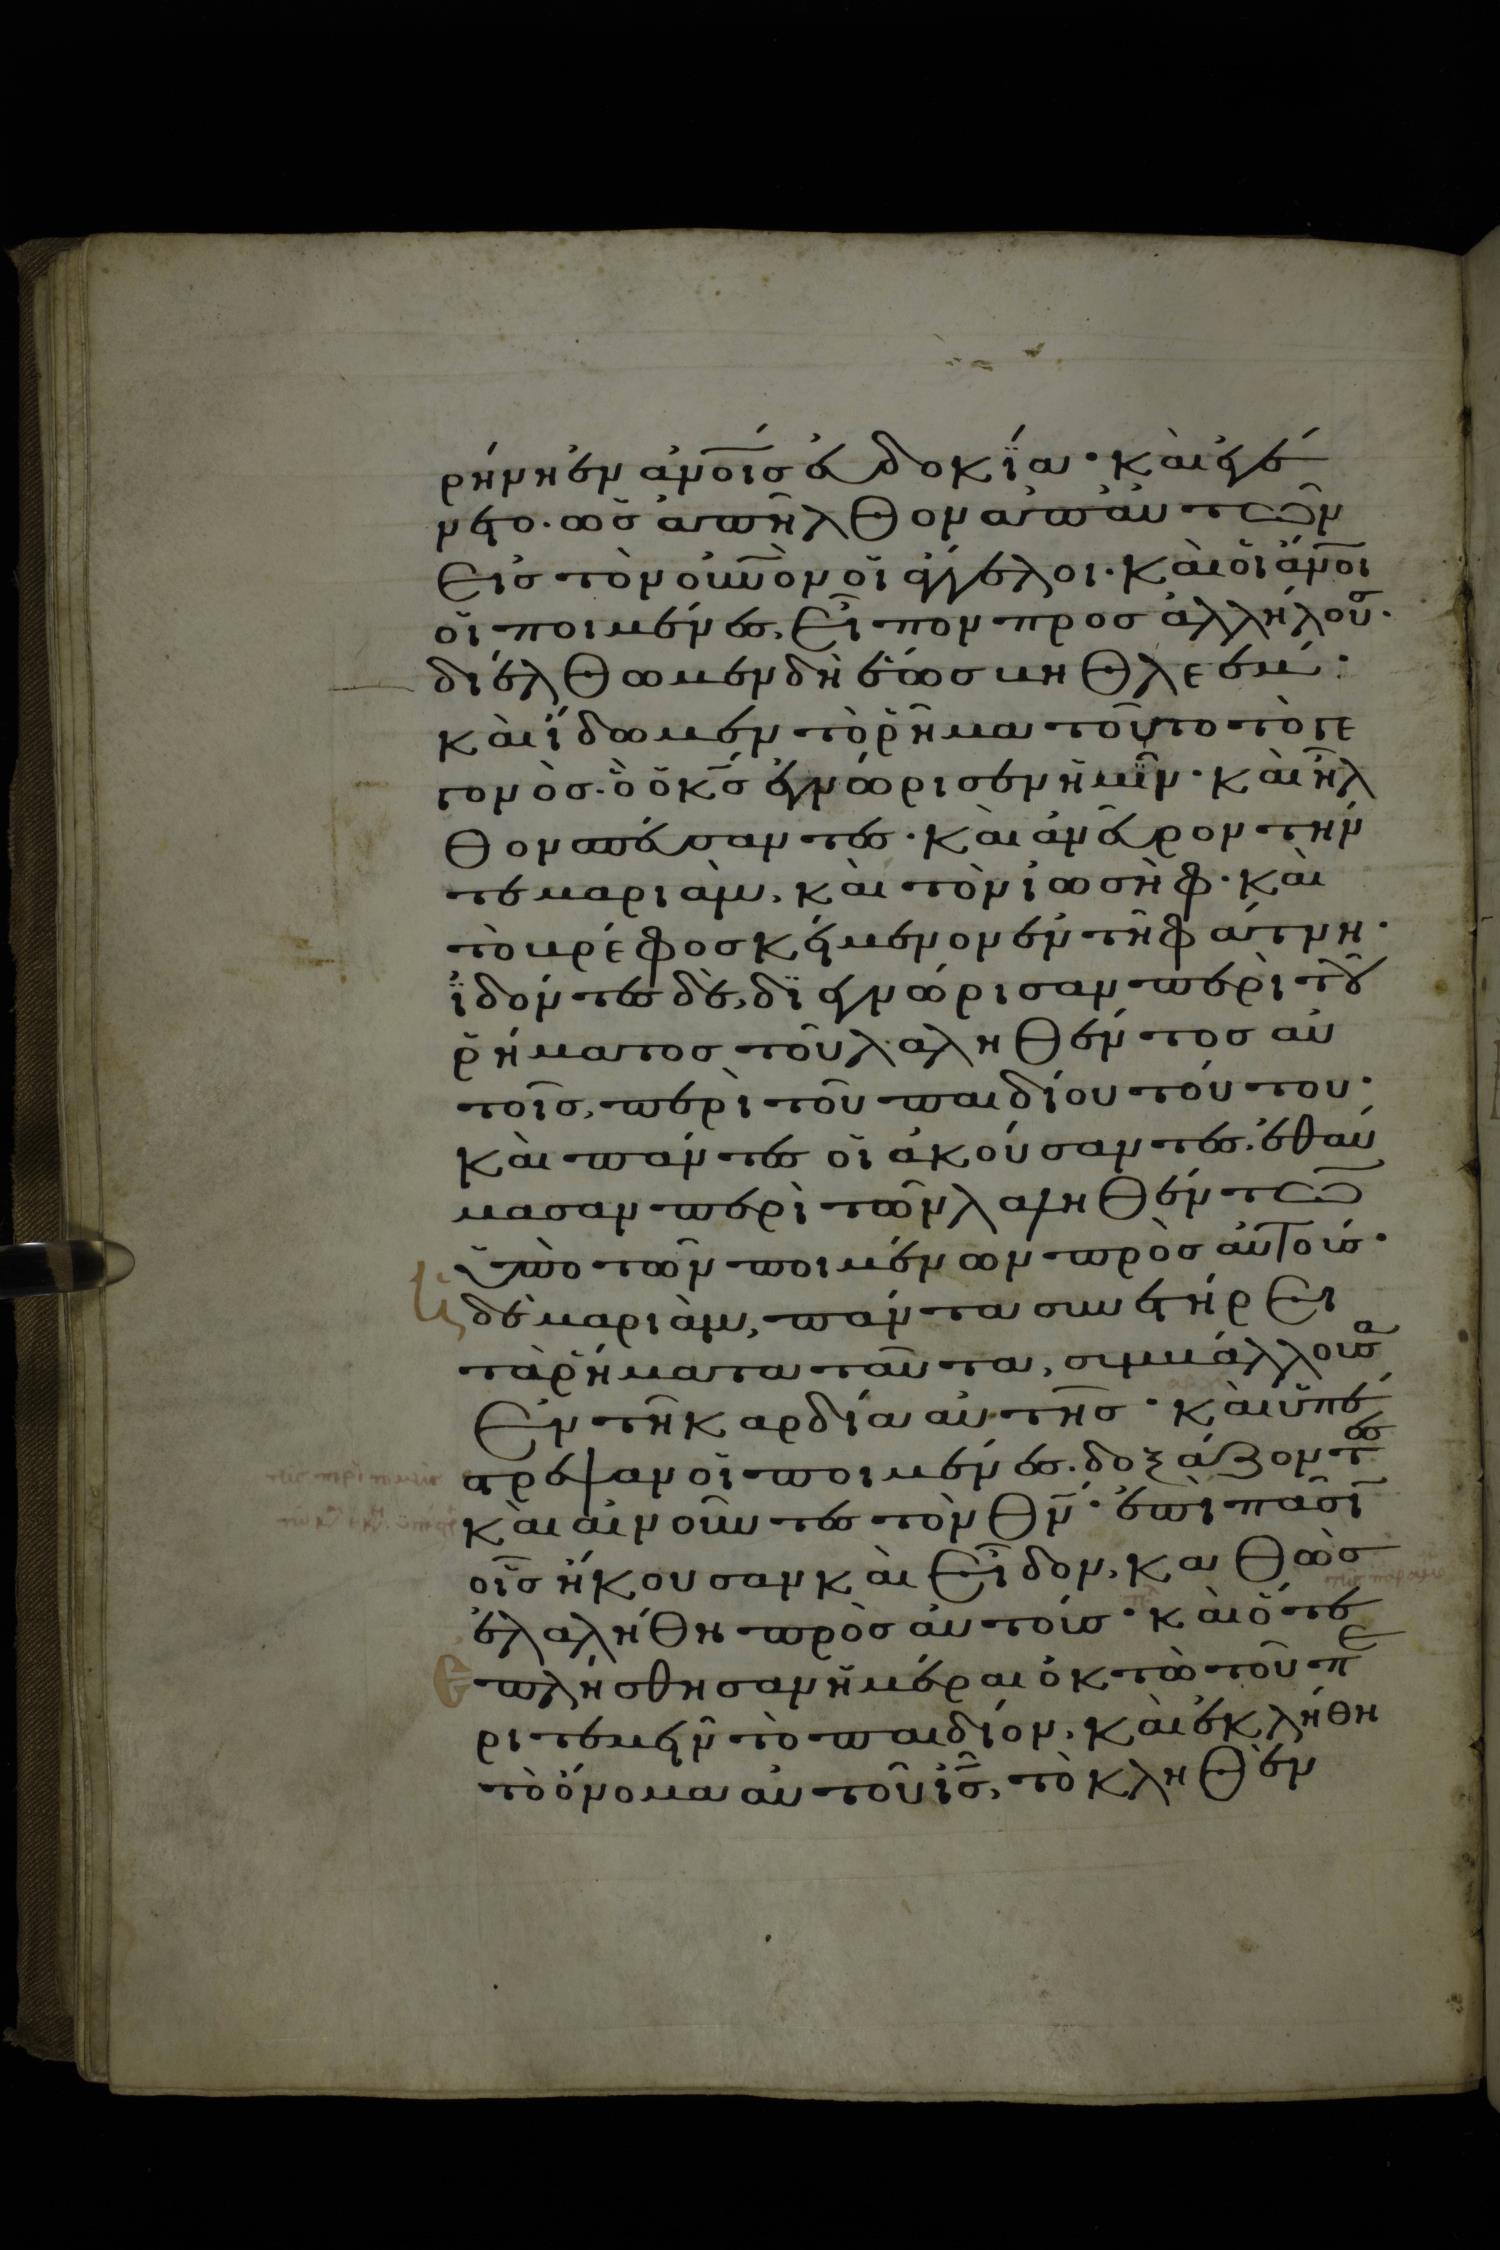 ρήνη ἐν ἀν̅οῖσ εὐδοκΐα· καὶ ἐγέ
νετο· ὡσ ἀπῆλθον ἀπ αὐτῶν
εἰσ τὸν οὐν̅ον οἱ ἄγγελοι· καὶ οἱ ἄν̅οι
οἱ ποιμένεσ, εἶπον προσ ἀλλήλουσ·
διέλθωμεν δὴ ἕωσ βηθλεέμ·
καὶ ἴδωμεν τὸ ῥῆμα τοῦτο τὸ γε
γονὸσ· ὃ ὁ κ̅σ ἐγνώρισεν ἡμῖν· καὶ ἦλ
θον σπεύσαντεσ· καὶ ἀνεῦρον τήν
τε μαριὰμ, καὶ τὸν ἰωσὴφ· καὶ
τὸ βρέφοσ κείμενον ἐν τῆ φάτνη·
ἰδόντεσ δὲ, διεγνώρισαν περὶ τοῦ
ῥήματοσ τοῦ λαληθέντοσ αὐ
τοῖσ, περὶ τοῦ παιδίου τούτου·
καὶ πάντεσ οἱ ἀκούσαντεσ, ἐθαύ
μασαν περὶ τῶν λαληθέντων
ὑπὸ τῶν ποιμένων πρὸσ αὐτούσ·
ἡ δὲ μαριὰμ, πάντα συνετήρει
τὰ ῥήματα ταῦτα, συμβάλλουσα
ἐν τῆ καρδία αὐτῆσ· καὶ ὑπέ
στρεψαν οἱ ποιμένεσ, δοξάζοντεσ
καὶ αἰνοῦντεσ τὸν θ̅ν· ἐπὶ πᾶσιν
οἷσ ἤκουσαν καὶ εἶδον, καθὼσ
ἐλαλήθη πρὸσ αὐτούσ· καὶ ὅτε
ἐπλήσθησαν ἡμέραι ὀκτὼ τοῦ πε
ριτεμεῖν τὸ παιδίον, καὶ ἐκλήθη
τὸ ὄνομα αὐτοῦ ἰ̅σ, τὸ κληθὲν